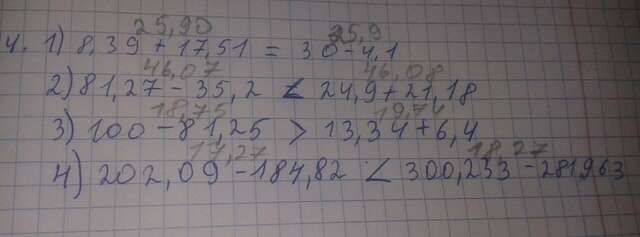 25,90 25,9
4. 1) 8,39 + 17,51 = 30 - 4,1
46,07 46,08
2) 81,27 - 35,2 < 24,9 + 21,18
18,75 19,74
3) 100 - 81,25 > 13,34 + 6,4
17,27 18,27
4) 202,09 - 184,82 < 300,233 - 281,963